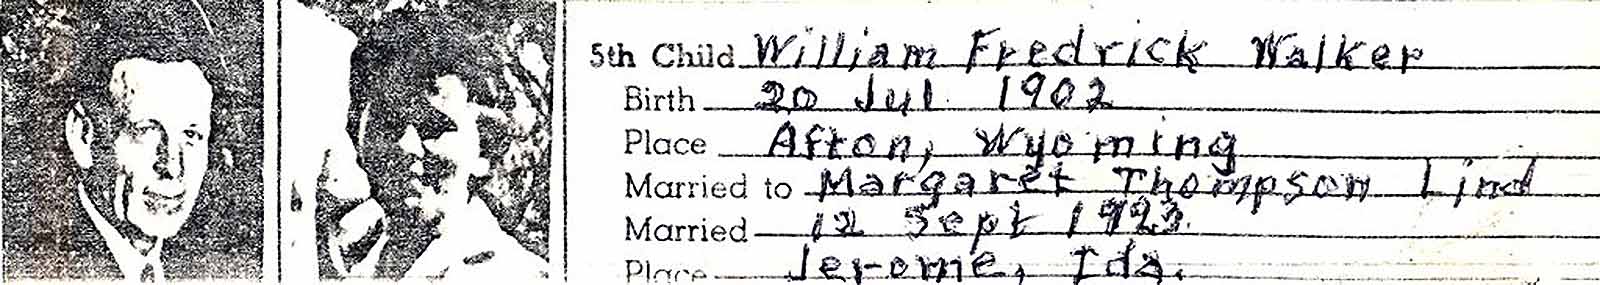 5th Child William Fredrick Walker
Birth 20 Jul 1902
Place Afton, Wyoming
Married to Margaret Thompson Lind
Married 12 Sept 1923
Place Jerome, Ida.